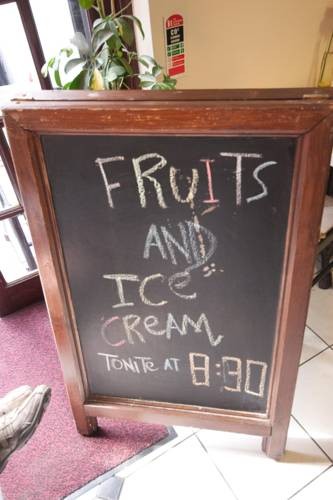 CO2
FRUITS
AND
ICE
CREAM
TONITE AT 8:30